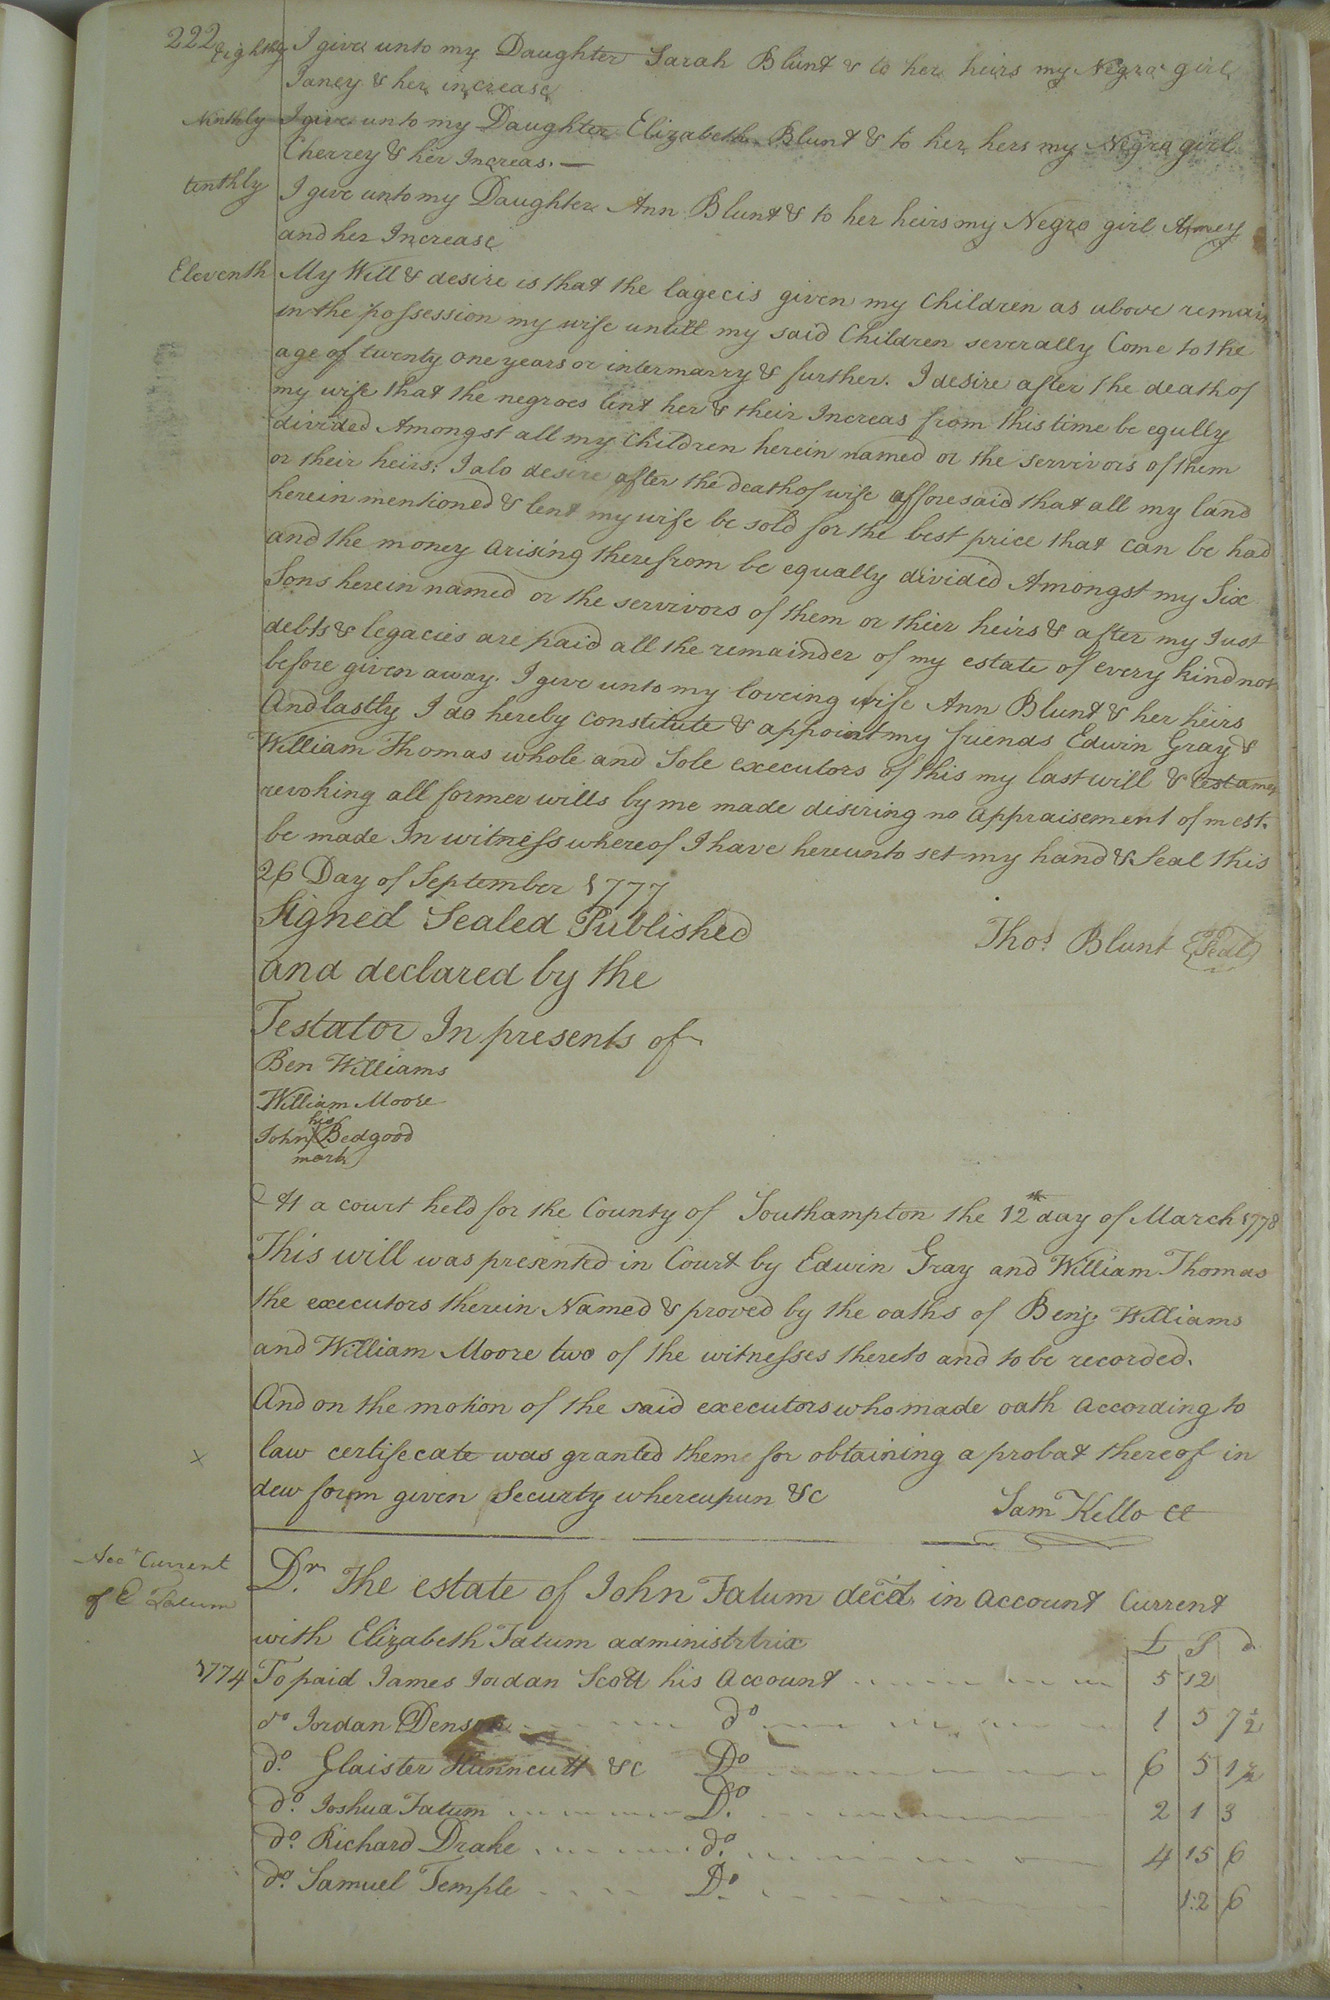 222
Eighthly I give unto my Daughter Sarah Blunt & to her heirs my Negro girl
Janey & her increase
Ninthly I give unto my Daughter Elizabeth Blunt & to her hers my Negro girl
Cherrey & her Increas. —
tenthly I give unto my Daughter Ann Blunt & to her heirs my Negro girl Amey
and her Increase
Eleventh My Will & desire is that the lagecis given my Children as above remain
in the possession my wife untill my said Children severally Come to the
age of twenty one years or intermarry & further. I desire after the death of
my wife that the negroes lent her & their Increas from this time be eqully
divided Amongst all my Children herein named or the servivors of them
or their heirs: I alo desire after the death of wife afforesaid that all my land
herein mentioned & lent my wife be sold for the best price that can be had
and the money arising therefrom be equally divided Amongst my Six
Sons herein named or the servivors of them or thier heirs & after my Just
debts & legacies are paid all the remainder of my estate of every kind not
before given away. I give unto my loveing wife Ann Blunt & her heirs
And lastly I do hereby constitute & appoint my friends Edwin Gray &
William Thomas whole and Sole executors of this my last will & testamen
revoking all former wills by me made disiring no appraisement of m est.
be made In witness whereof I have hereunto set my hand & Seal this
26 Day of September 1777
Signed Sealed Published
Thos Blunt (Seal)
and declared by the
Testator In presents of
Ben Williams
William Moore
his
John X Bedgood
mark
At a court held for the County of Southampton the 12th day of March 1778
This will was presented in Court by Edwin Gray and William Thomas
the executors therein Named & proved by the oaths of Benj. Williams
and William Moore two of the witnesses thereto and to be recorded.
And on the motion of the said executors who made oath According to
x law certifecate was granted them for obtaining a probat thereof in
dew form given Securty whereupun &c
Sam Kello Cl
Acct Current
of E Tatum
Dr. The estate of John Tatum dec'd. in account Current
with Elizabeth Tatum administrtrix £ S d
1774 To paid James Jordan Scott his Account 5 12
do Jordan Denson do 1 5 7 1/2
do. Glaister Hunnicutt &c Do 6 5 1 1/2
do. Joshua Tatum Do. 2 1 3
do. Richard Drake do. 4 15 6
do. Samuel Temple Do. 1:2 6